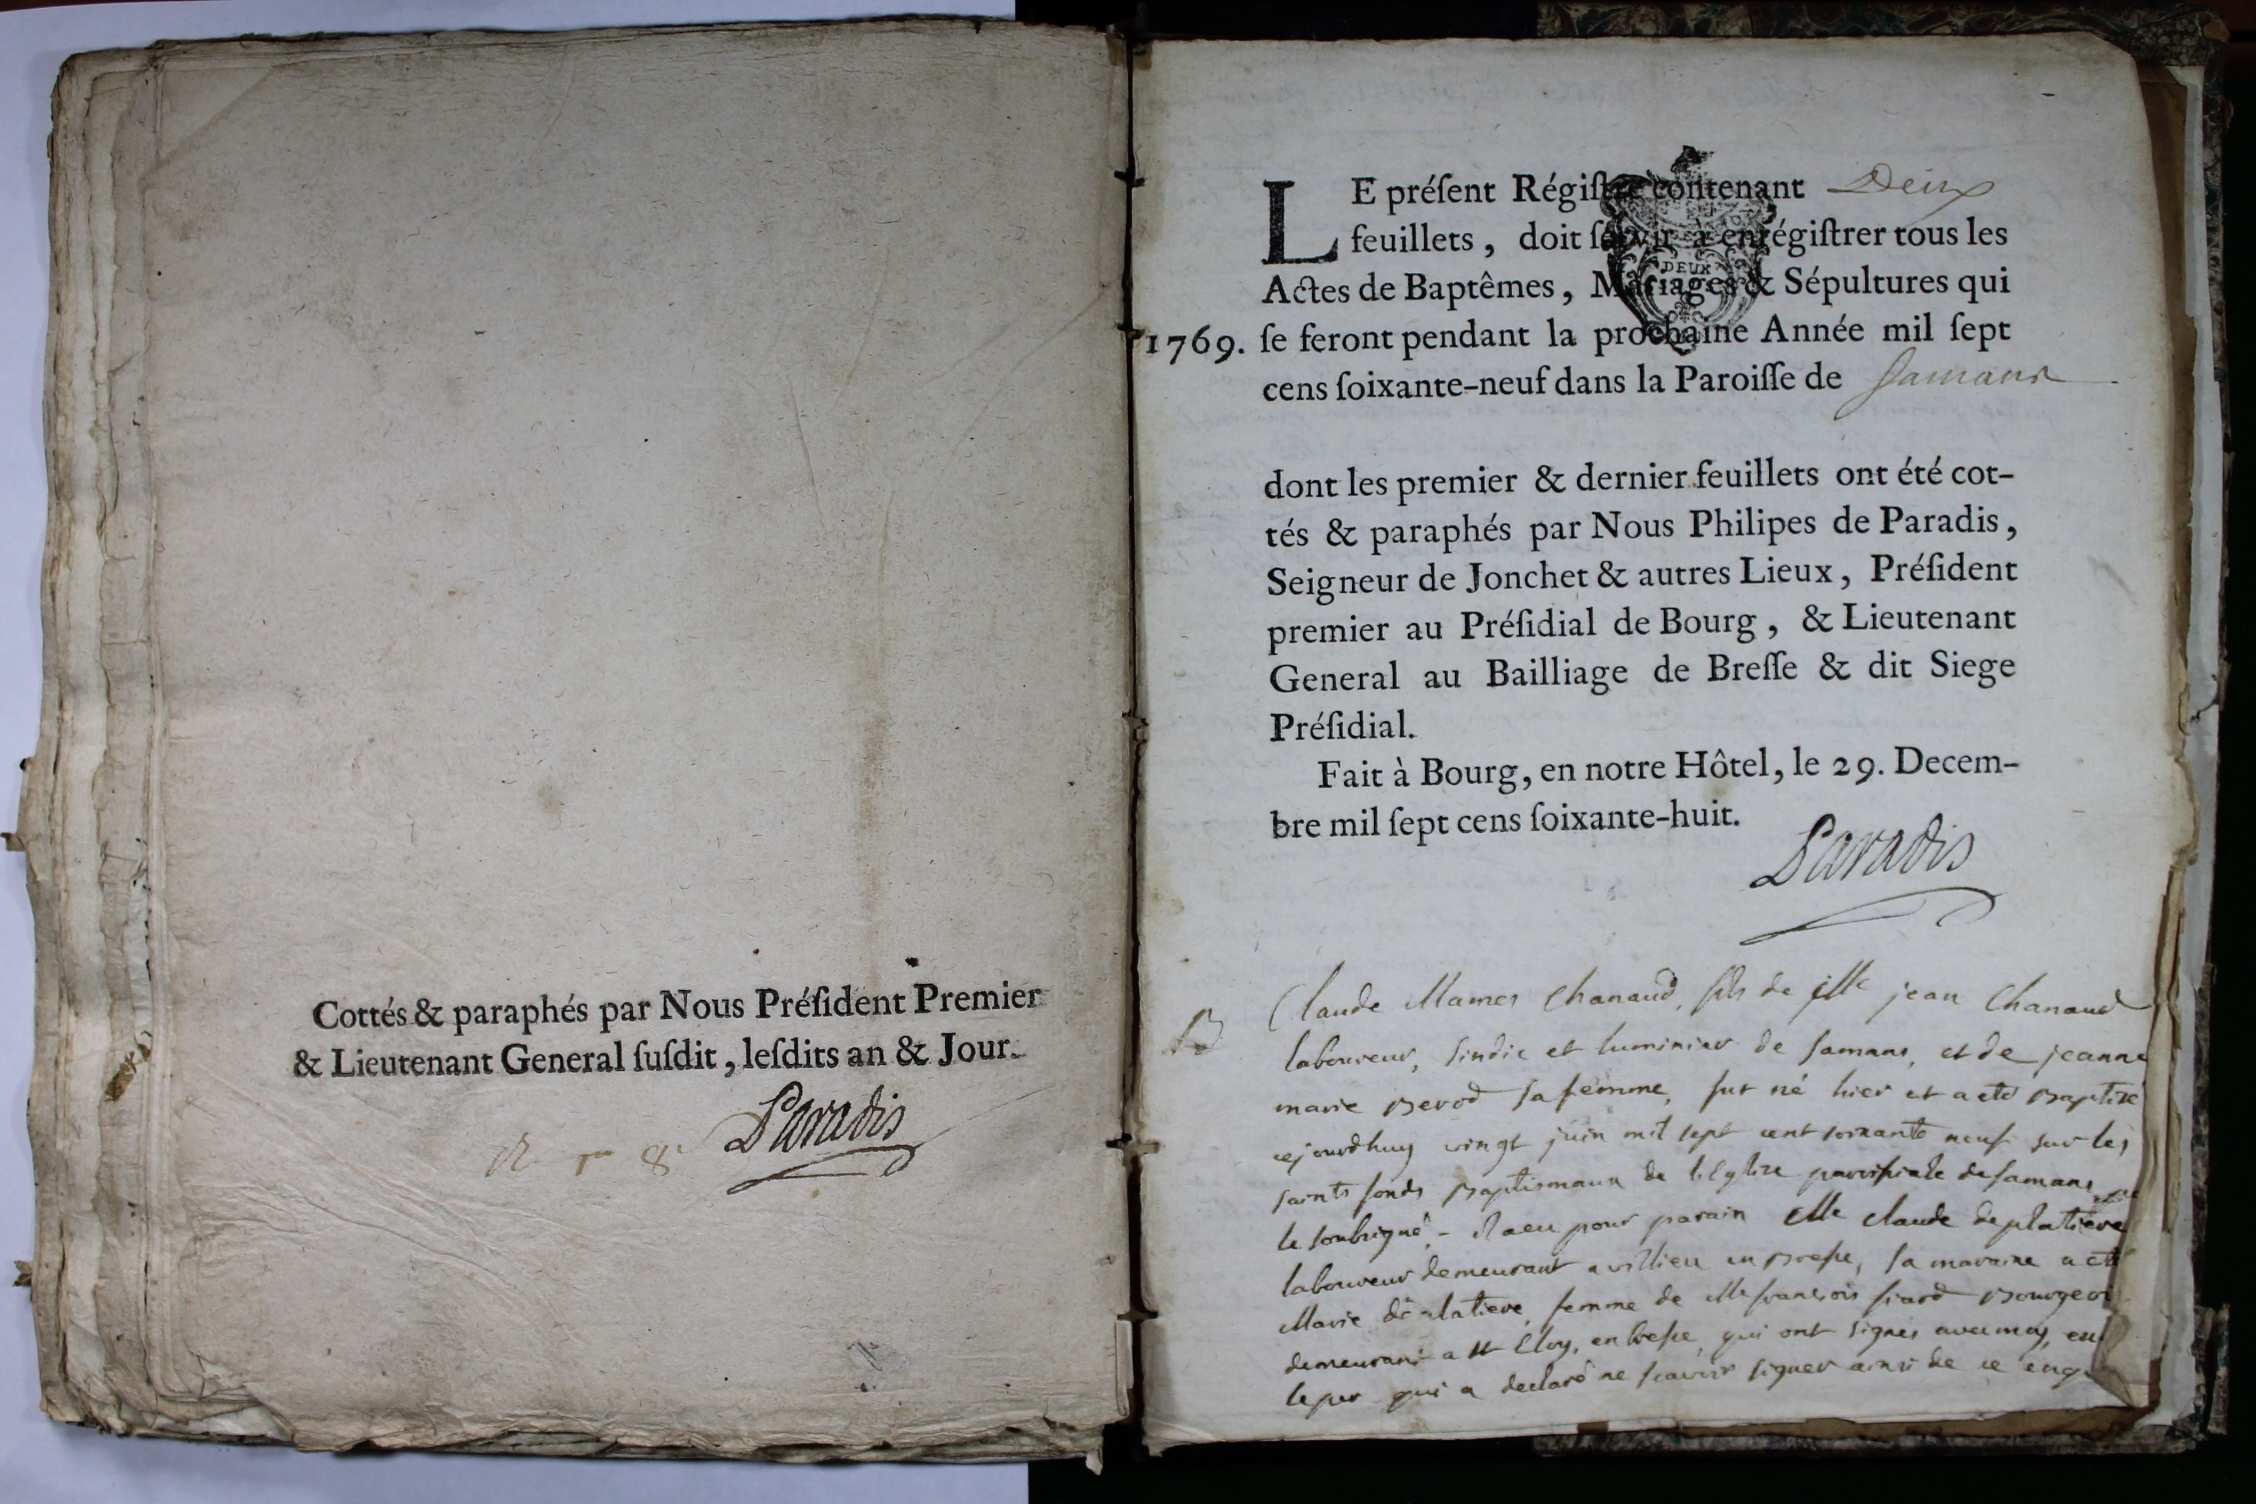 Cottés & paraphés par Nous Préſident Premier
& Lieutenant General ſuſdit, leſdits an & Jour.
Paradis
LE préſent Régiſtre contenant Deux
feuillets, doit ſervir à enrégiſtrer tous les
DEUX
Actes de Baptêmes, Mariages & Sépultures qui
1769. ſe feront pendant la prochaine Année mil ſept
cens ſoixante-neuf dans la Paroiſſe de Samans
dont les premier & dernier feuillets ont été cot-
tés & paraphés par Nous Philipes de Paradis,
Seigneur de Jonchet & autres Lieux, Préſident
premier au Préſidial de Bourg, & Lieutenant
General au Bailliage de Breſſe & dit Siege
Préſidial.
Fait à Bourg, en notre Hôtel, le 29. Decem-
bre mil ſept cens ſoixante-huit.
Paradis
B Claude Mames Chanaud, fils de jean Chanaud
laboureur, sindic et luminier de samans, et de jeanne
marie Berod sa femme, fut né hier et a eté Baptisé
cejourdhuy vingt juin mil sept cent soixante neuf sur les
saints fonds Baptismaux de l'Eglise parroissiale de samans
le soubsigné, - il a eu pour parain claude deplatiere
laboureur demeurant a villieu en Bresse, sa maraine a eté
Marie deplatiere, femme de françois siard Bourgeois
demeurant a st Eloy, en bresse, qui ont signés avec moy,
le per qui a declaré ne scavoir signer ainsi de ce